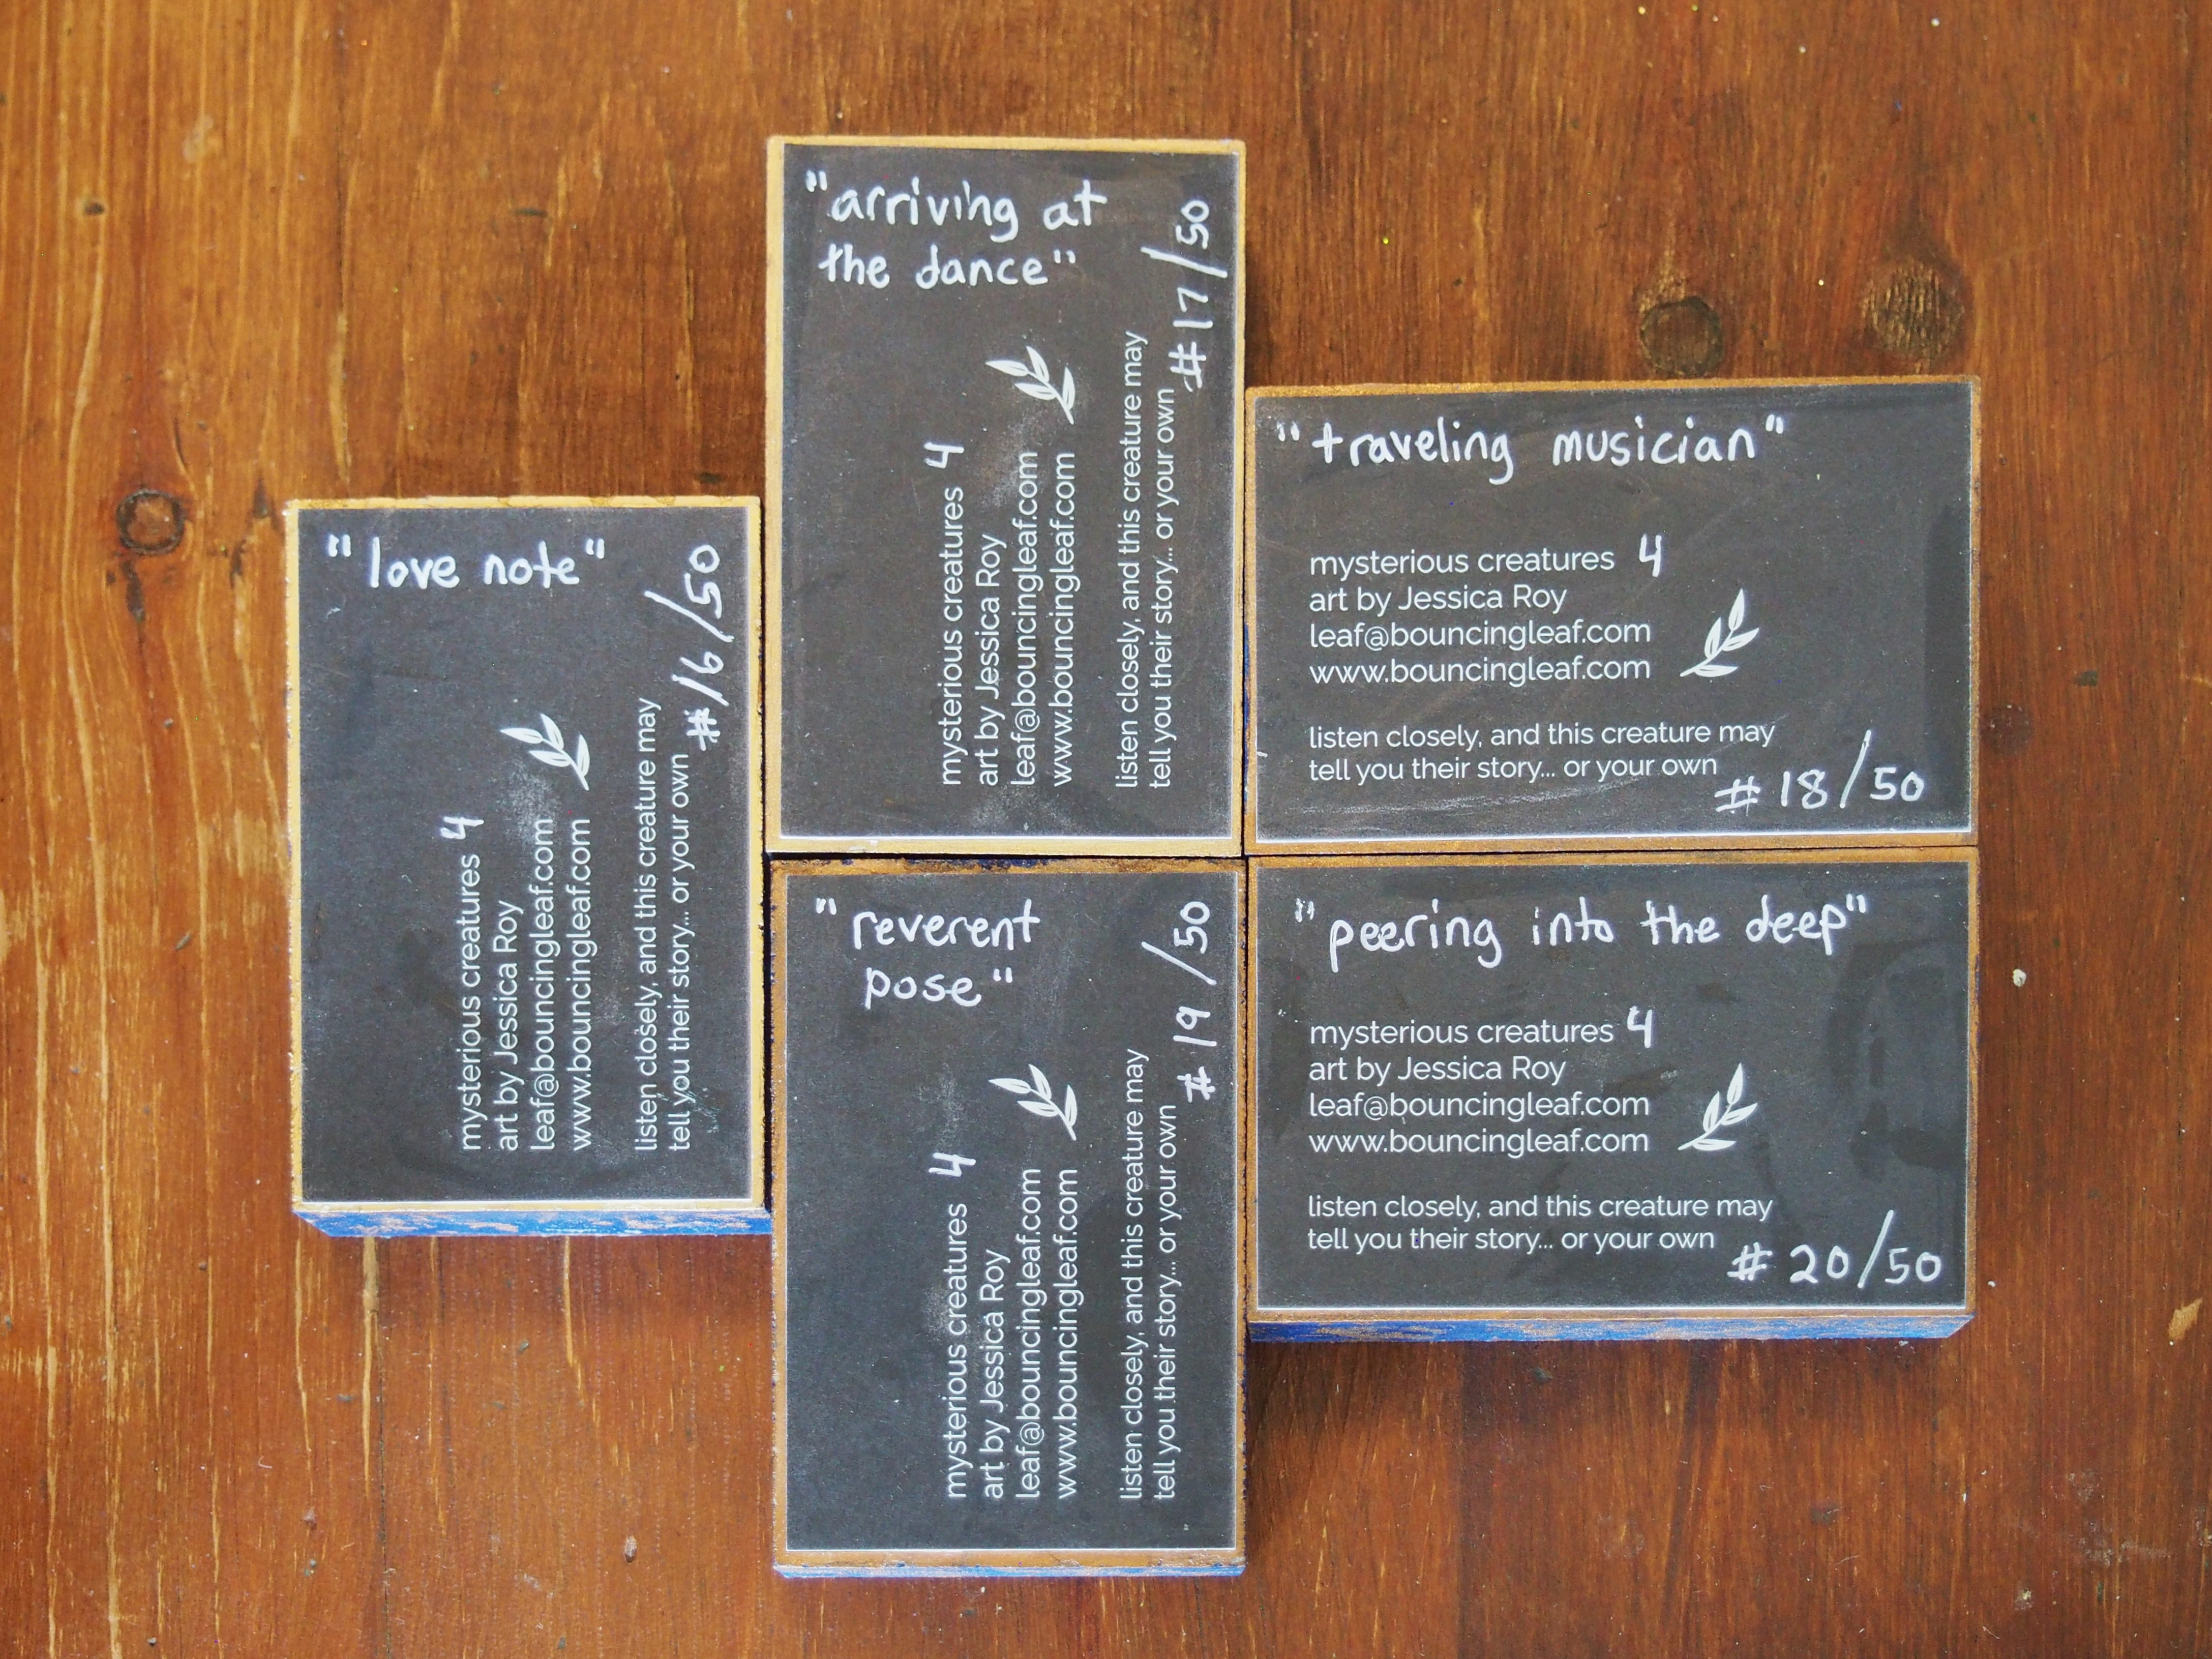 "love note"
mysterious creatures 4
art by Jessica Roy
leaf@bouncingleaf.com
www.bouncingleaf.com
listen closely, and this creature may
tell you their story... or your own
#16/50
"arriving at
the dance"
mysterious creatures 4
art by Jessica Roy
leaf@bouncingleaf.com
www.bouncingleaf.com
listen closely, and this creature may
tell you their story... or your own
#17/50
"traveling musician"
mysterious creatures 4
art by Jessica Roy
leaf@bouncingleaf.com
www.bouncingleaf.com
listen closely, and this creature may
tell you their story... or your own
#18/50
"reverent
pose"
mysterious creatures 4
art by Jessica Roy
leaf@bouncingleaf.com
www.bouncingleaf.com
listen closely, and this creature may
tell you their story... or your own
#19/50
"peering into the deep"
mysterious creatures 4
art by Jessica Roy
leaf@bouncingleaf.com
www.bouncingleaf.com
listen closely, and this creature may
tell you their story... or your own
#20/50